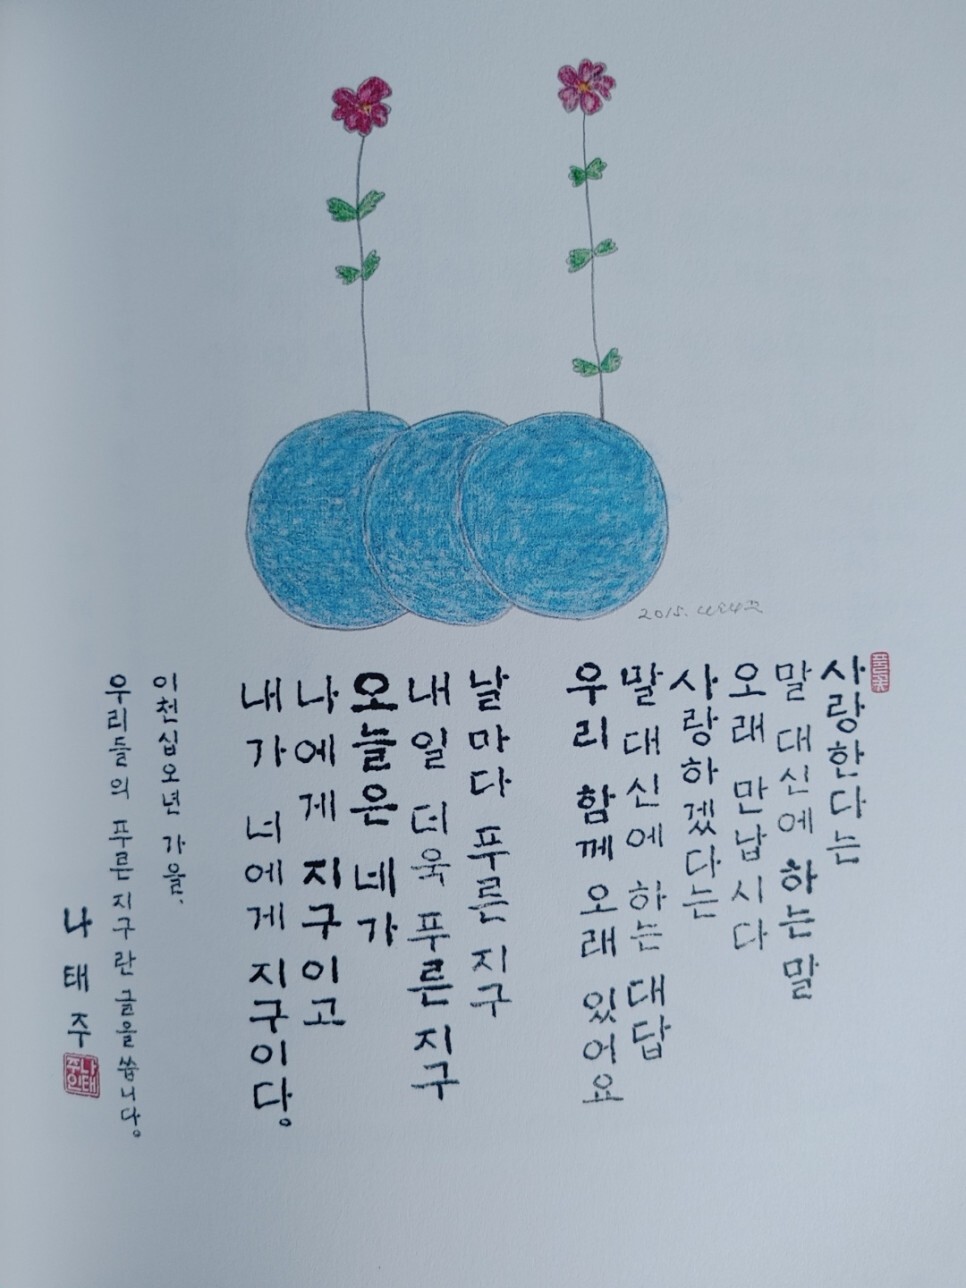 2015.
사랑한다는
말 대신에 하는 말
오래 만납시다
사랑하겠다는
말 대신에 하는 대답
우리 함께 오래 있어요
날마다 푸른 지구
내일 더욱 푸른 지구
오늘은 네가
나에게 지구이고
내가 너에게 지구이다.
이천십오년 가을.
우리들의 푸른 지구란 글을 씁니다.
나태주